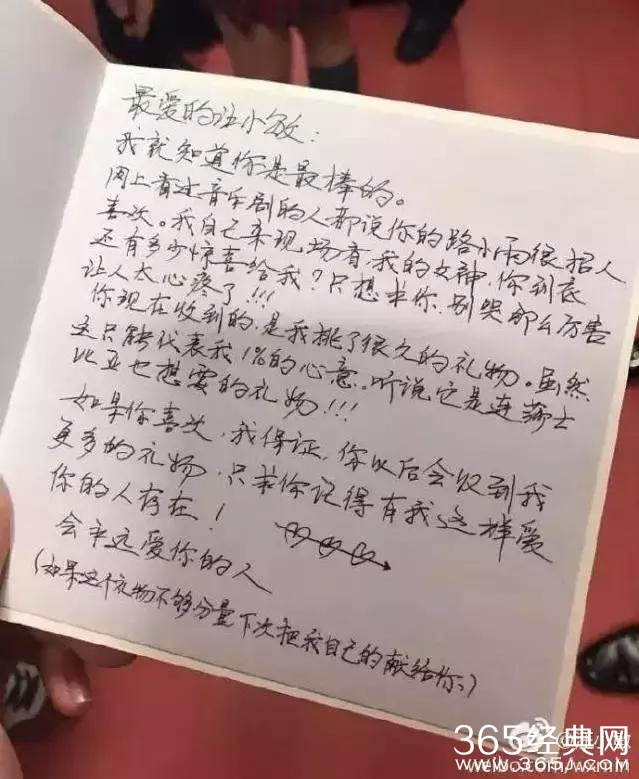 最爱的汪小敏:
我就知道你是最棒的。
网上看过音乐剧的人都说你的路小雨很招人
喜欢。我自己来现场看,我的女神,你到底
还有多少惊喜给我?只想求你,别哭那么厉害
让人太心疼了!!!
你现在收到的,是我挑了很久的礼物。虽然
这只能代表我1%的心意。听说它是连莎士
比亚也想要的礼物!!!
如果你喜欢,我保证,你以后会收到我
更多的礼物,只求你记得有我这样爱
你的人存在!
会永远爱你的人
(如果这个礼物不够分量下次把我自己的献给你:)
365经典网
WWW.365J.COM